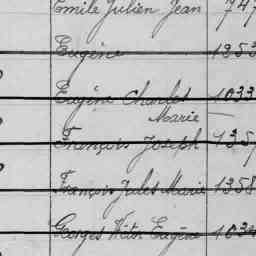 Emile Julien Jean 747
Eugène 1253
Eugène Charles 1033
Marie
François Joseph 135
François Jules Marie 1358
Georges Eugène 103